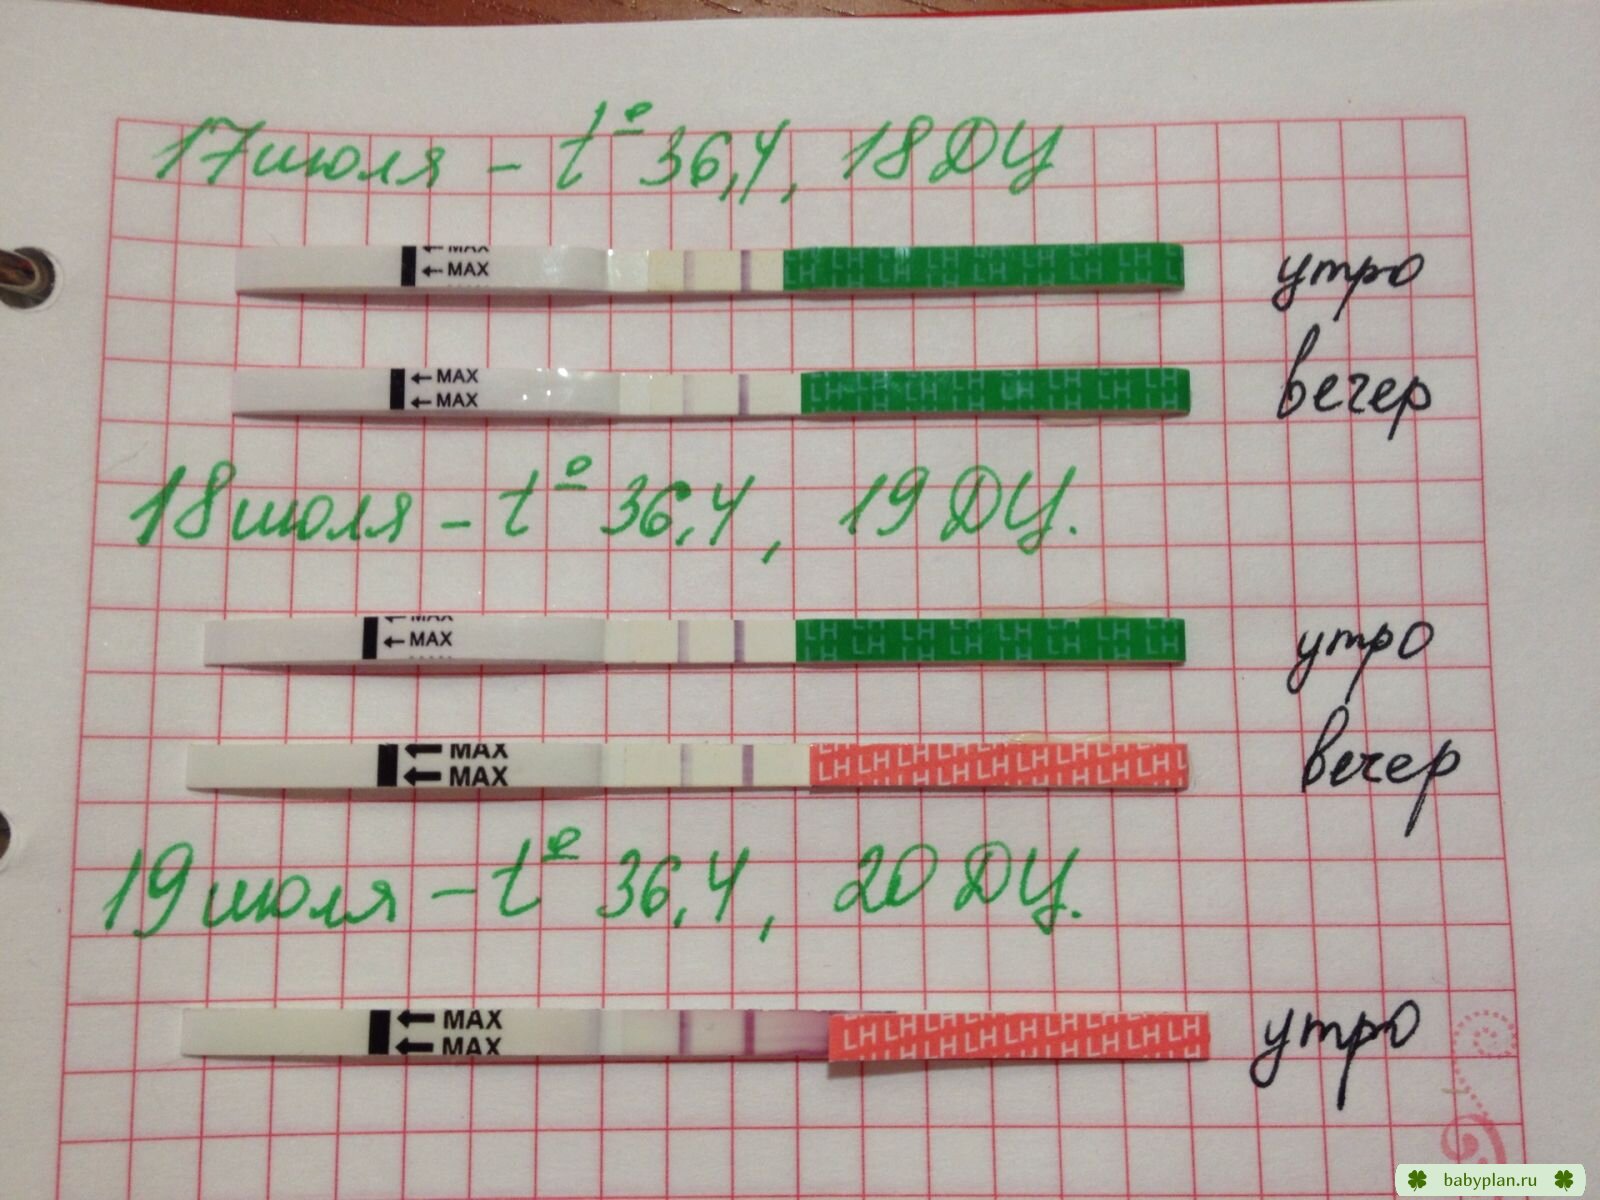 17 июля - t° 36,4, 18 ДЦ
MAX
MAX
LH LH LH LH LH LH LH LH
утро
MAX
MAX
LH LH LH LH LH LH LH LH
вечер
18 июля - t° 36,4, 19 ДЦ.
MAX
MAX
LH LH LH LH LH LH LH LH
утро
MAX
MAX
LH LH LH LH LH LH LH LH
вечер
19 июля - t° 36,4, 20 ДЦ.
MAX
MAX
LH LH LH LH LH LH LH LH
утро
babyplan.ru